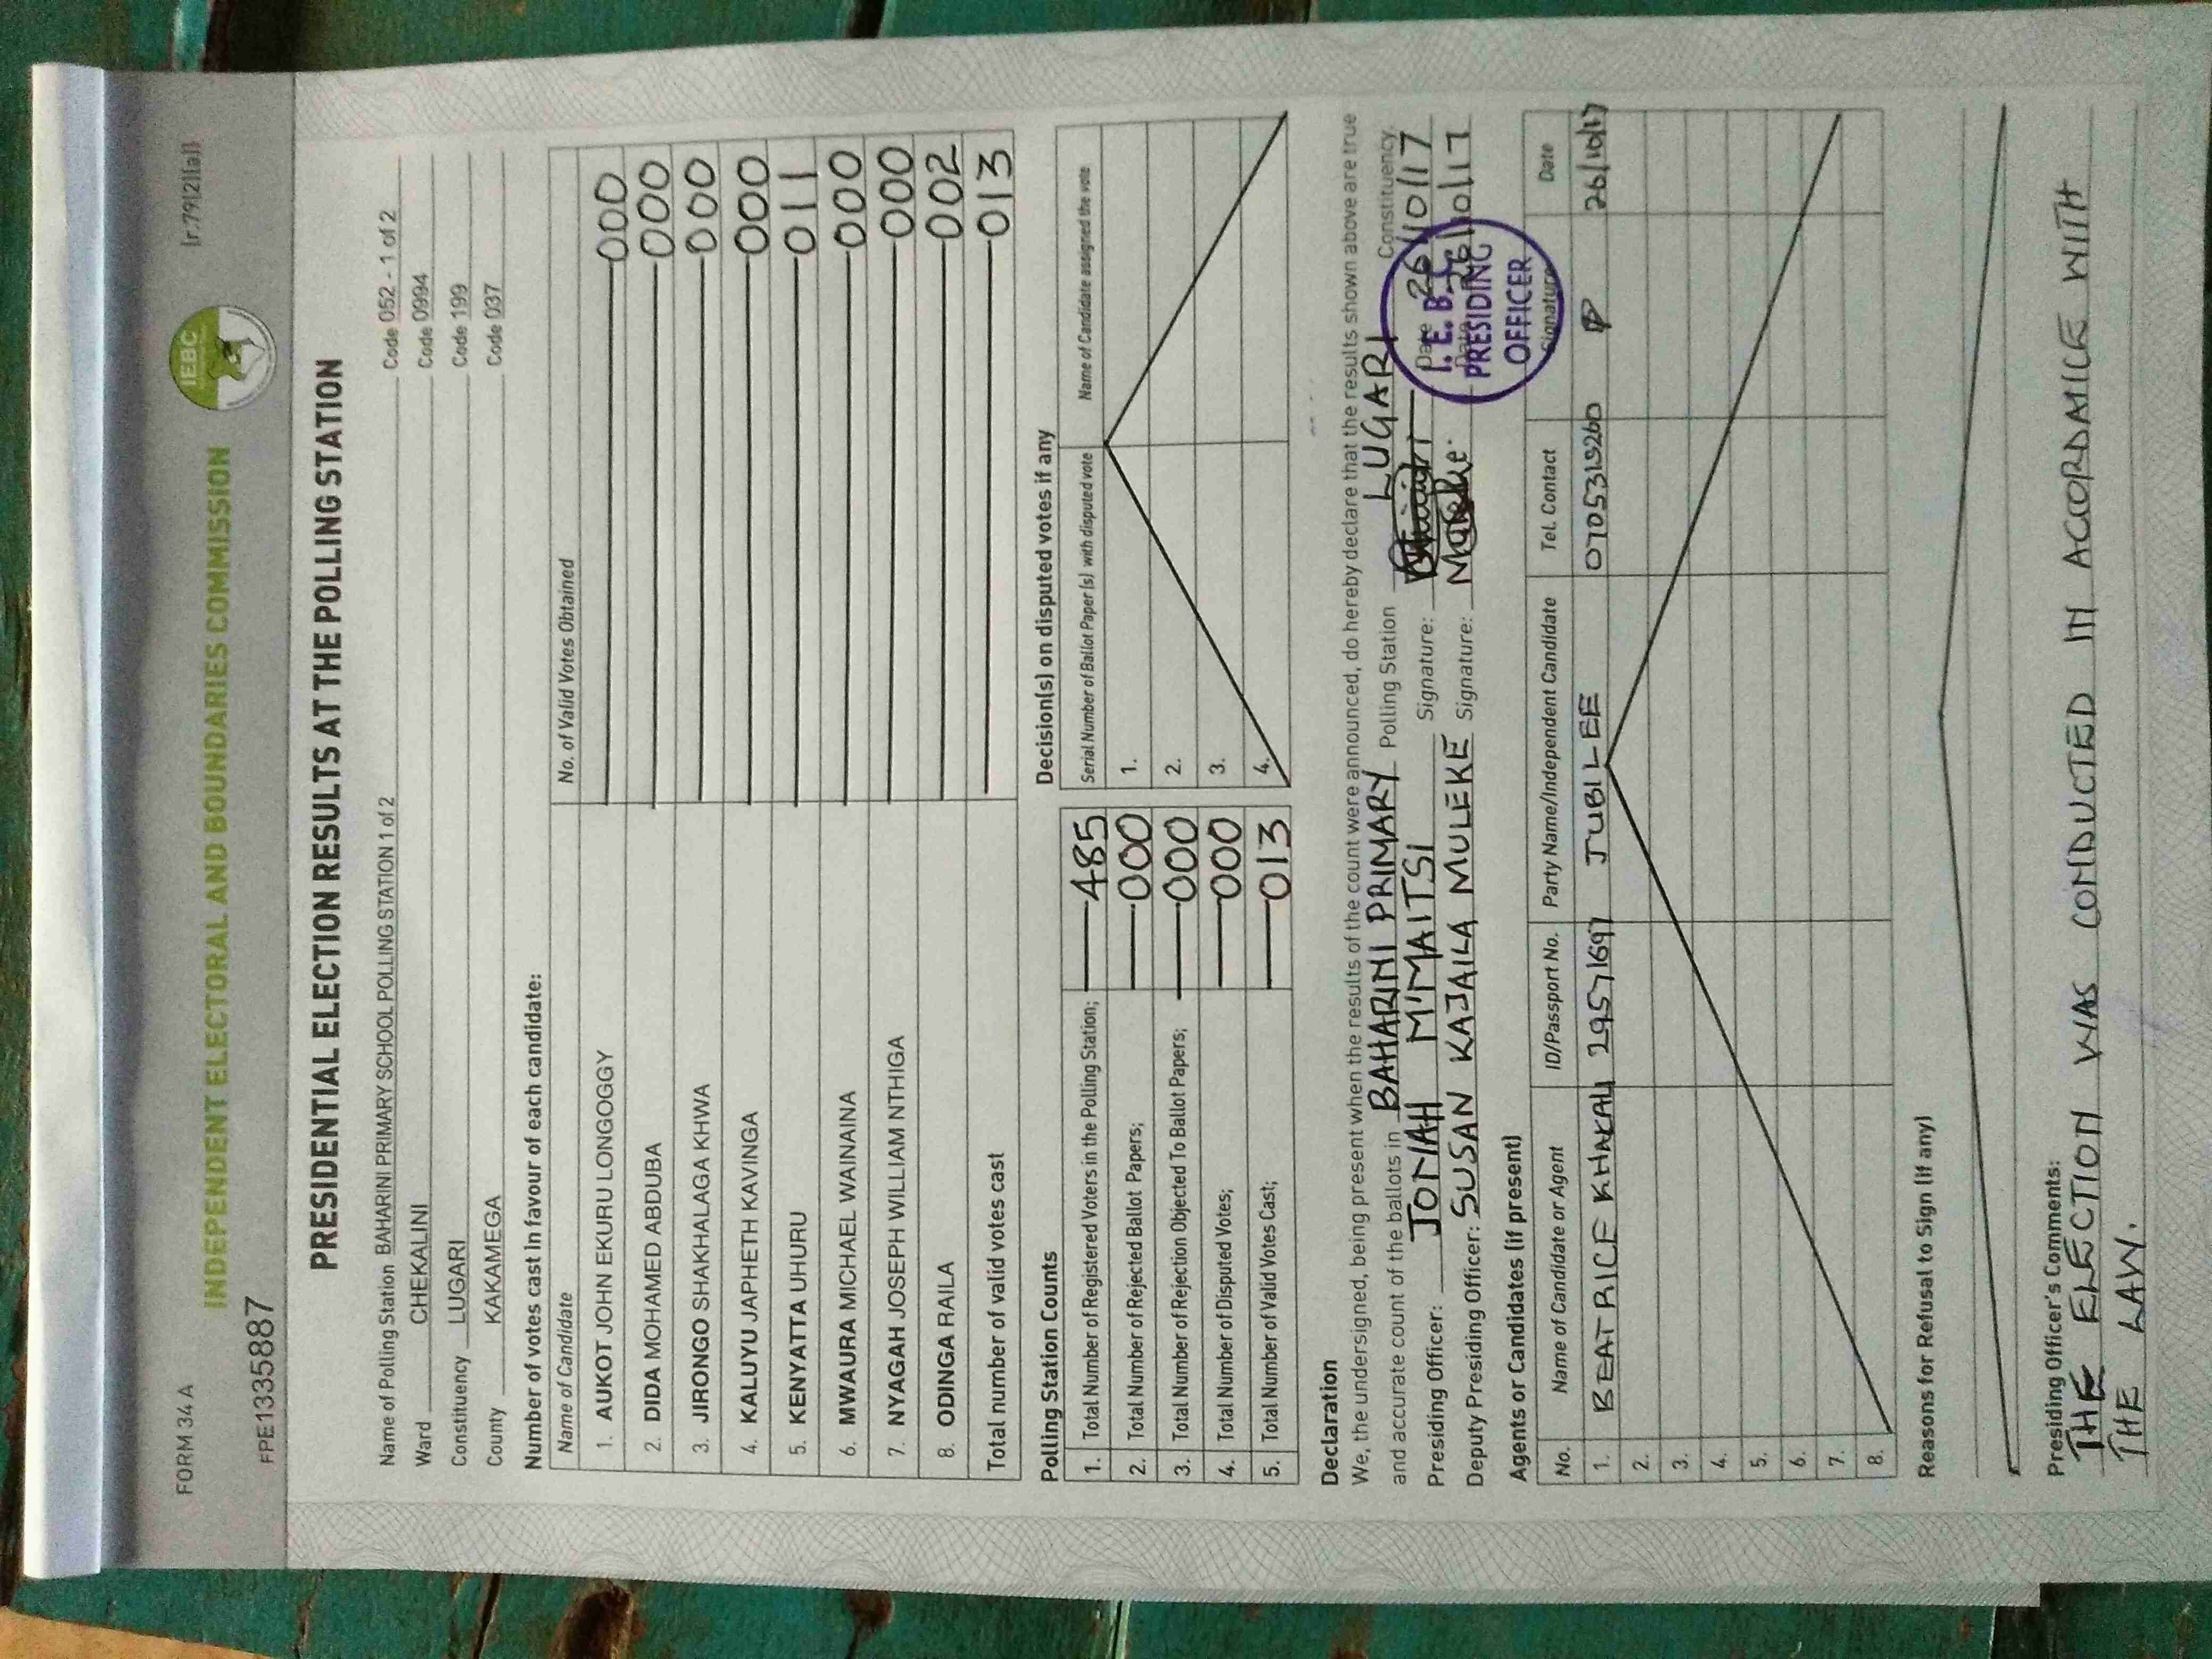 FORM 34 A
[r.79(2)(a)]
IEBC
INDEPENDENT ELECTORAL AND BOUNDARIES COMMISSION
FPE1335887
PRESIDENTIAL ELECTION RESULTS AT THE POLLING STATION
Name of Polling Station BAHARINI PRIMARY SCHOOL POLLING STATION 1 of 2 Code 052 - 1 of 2
Ward CHEKALINI Code 0994
Constituency LUGARI Code 199
County KAKAMEGA Code 037
Number of votes cast in favour of each candidate:
Name of Candidate No. of Valid Votes Obtained
1. AUKOT JOHN EKURU LONGOGGY 000
2. DIDA MOHAMED ABDUBA 000
3. JIRONGO SHAKHALAGA KHWA 000
4. KALUYU JAPHETH KAVINGA 000
5. KENYATTA UHURU 011
6. MWAURA MICHAEL WAINAINA 000
7. NYAGAH JOSEPH WILLIAM NTHIGA 000
8. ODINGA RAILA 002
Total number of valid votes cast 013
Polling Station Counts
1. Total Number of Registered Voters in the Polling Station; 485
2. Total Number of Rejected Ballot Papers; 000
3. Total Number of Rejection Objected To Ballot Papers; 000
4. Total Number of Disputed Votes; 000
5. Total Number of Valid Votes Cast; 013
Decision(s) on disputed votes if any
Serial Number of Ballot Paper (s) with disputed vote Name of Candidate assigned the vote
1.
2.
3.
4.
Declaration
We, the undersigned, being present when the results of the count were announced, do hereby declare that the results shown above are true
and accurate count of the ballots in BAHARINI PRIMARY Polling Station LUGARI Constituency.
Presiding Officer: JONAH M'MAITSI Signature: Date 26/10/17
Deputy Presiding Officer: SUSAN KAJAILA MULEKE Signature: Date 26/10/17
I.E.B.C
PRESIDING
OFFICER
Agents or Candidates (if present)
No. Name of Candidate or Agent ID/Passport No. Party Name/Independent Candidate Tel. Contact Signature Date
1. BEATRICE KHAKALI 29571697 JUBILEE 26/10/17
2.
3.
4.
5.
6.
7.
8.
Reasons for Refusal to Sign (if any)
Presiding Officer's Comments:
THE ELECTION WAS CONDUCTED IN ACCORDANCE WITH
THE LAW.